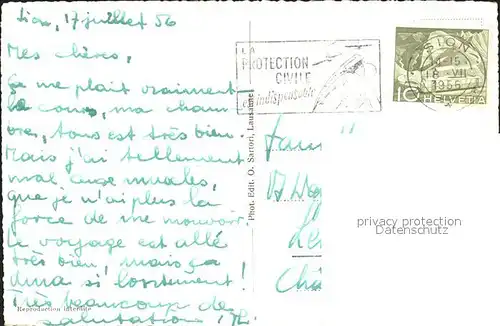 Sion, 17 juillet 56
Mes chères,
Ça me plait vraiment
le cours, ma cham
bre, tous est très bien.
Mais j'ai tellement
mal aux muscles,
que je n'ai plus la
force de me mouvoir.
Le voyage est allé
très bien, mais ça
dura si
Très beaucoup de
salutations
Reproduction interdite
Phot. Edit. O. Sartori, Lausanne
LA
PROTECTION
CIVILE
est indispensable
SION
18 -VII
1956
10 HELVETIA
privacy protection
Datenschutz